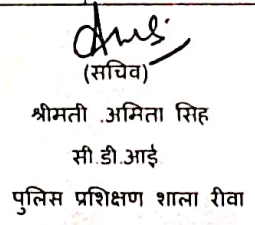 (सचिव)
श्रीमती .अमिता सिह
सी.डी.आई.
पुलिस प्रशिक्षण शाला रीवा